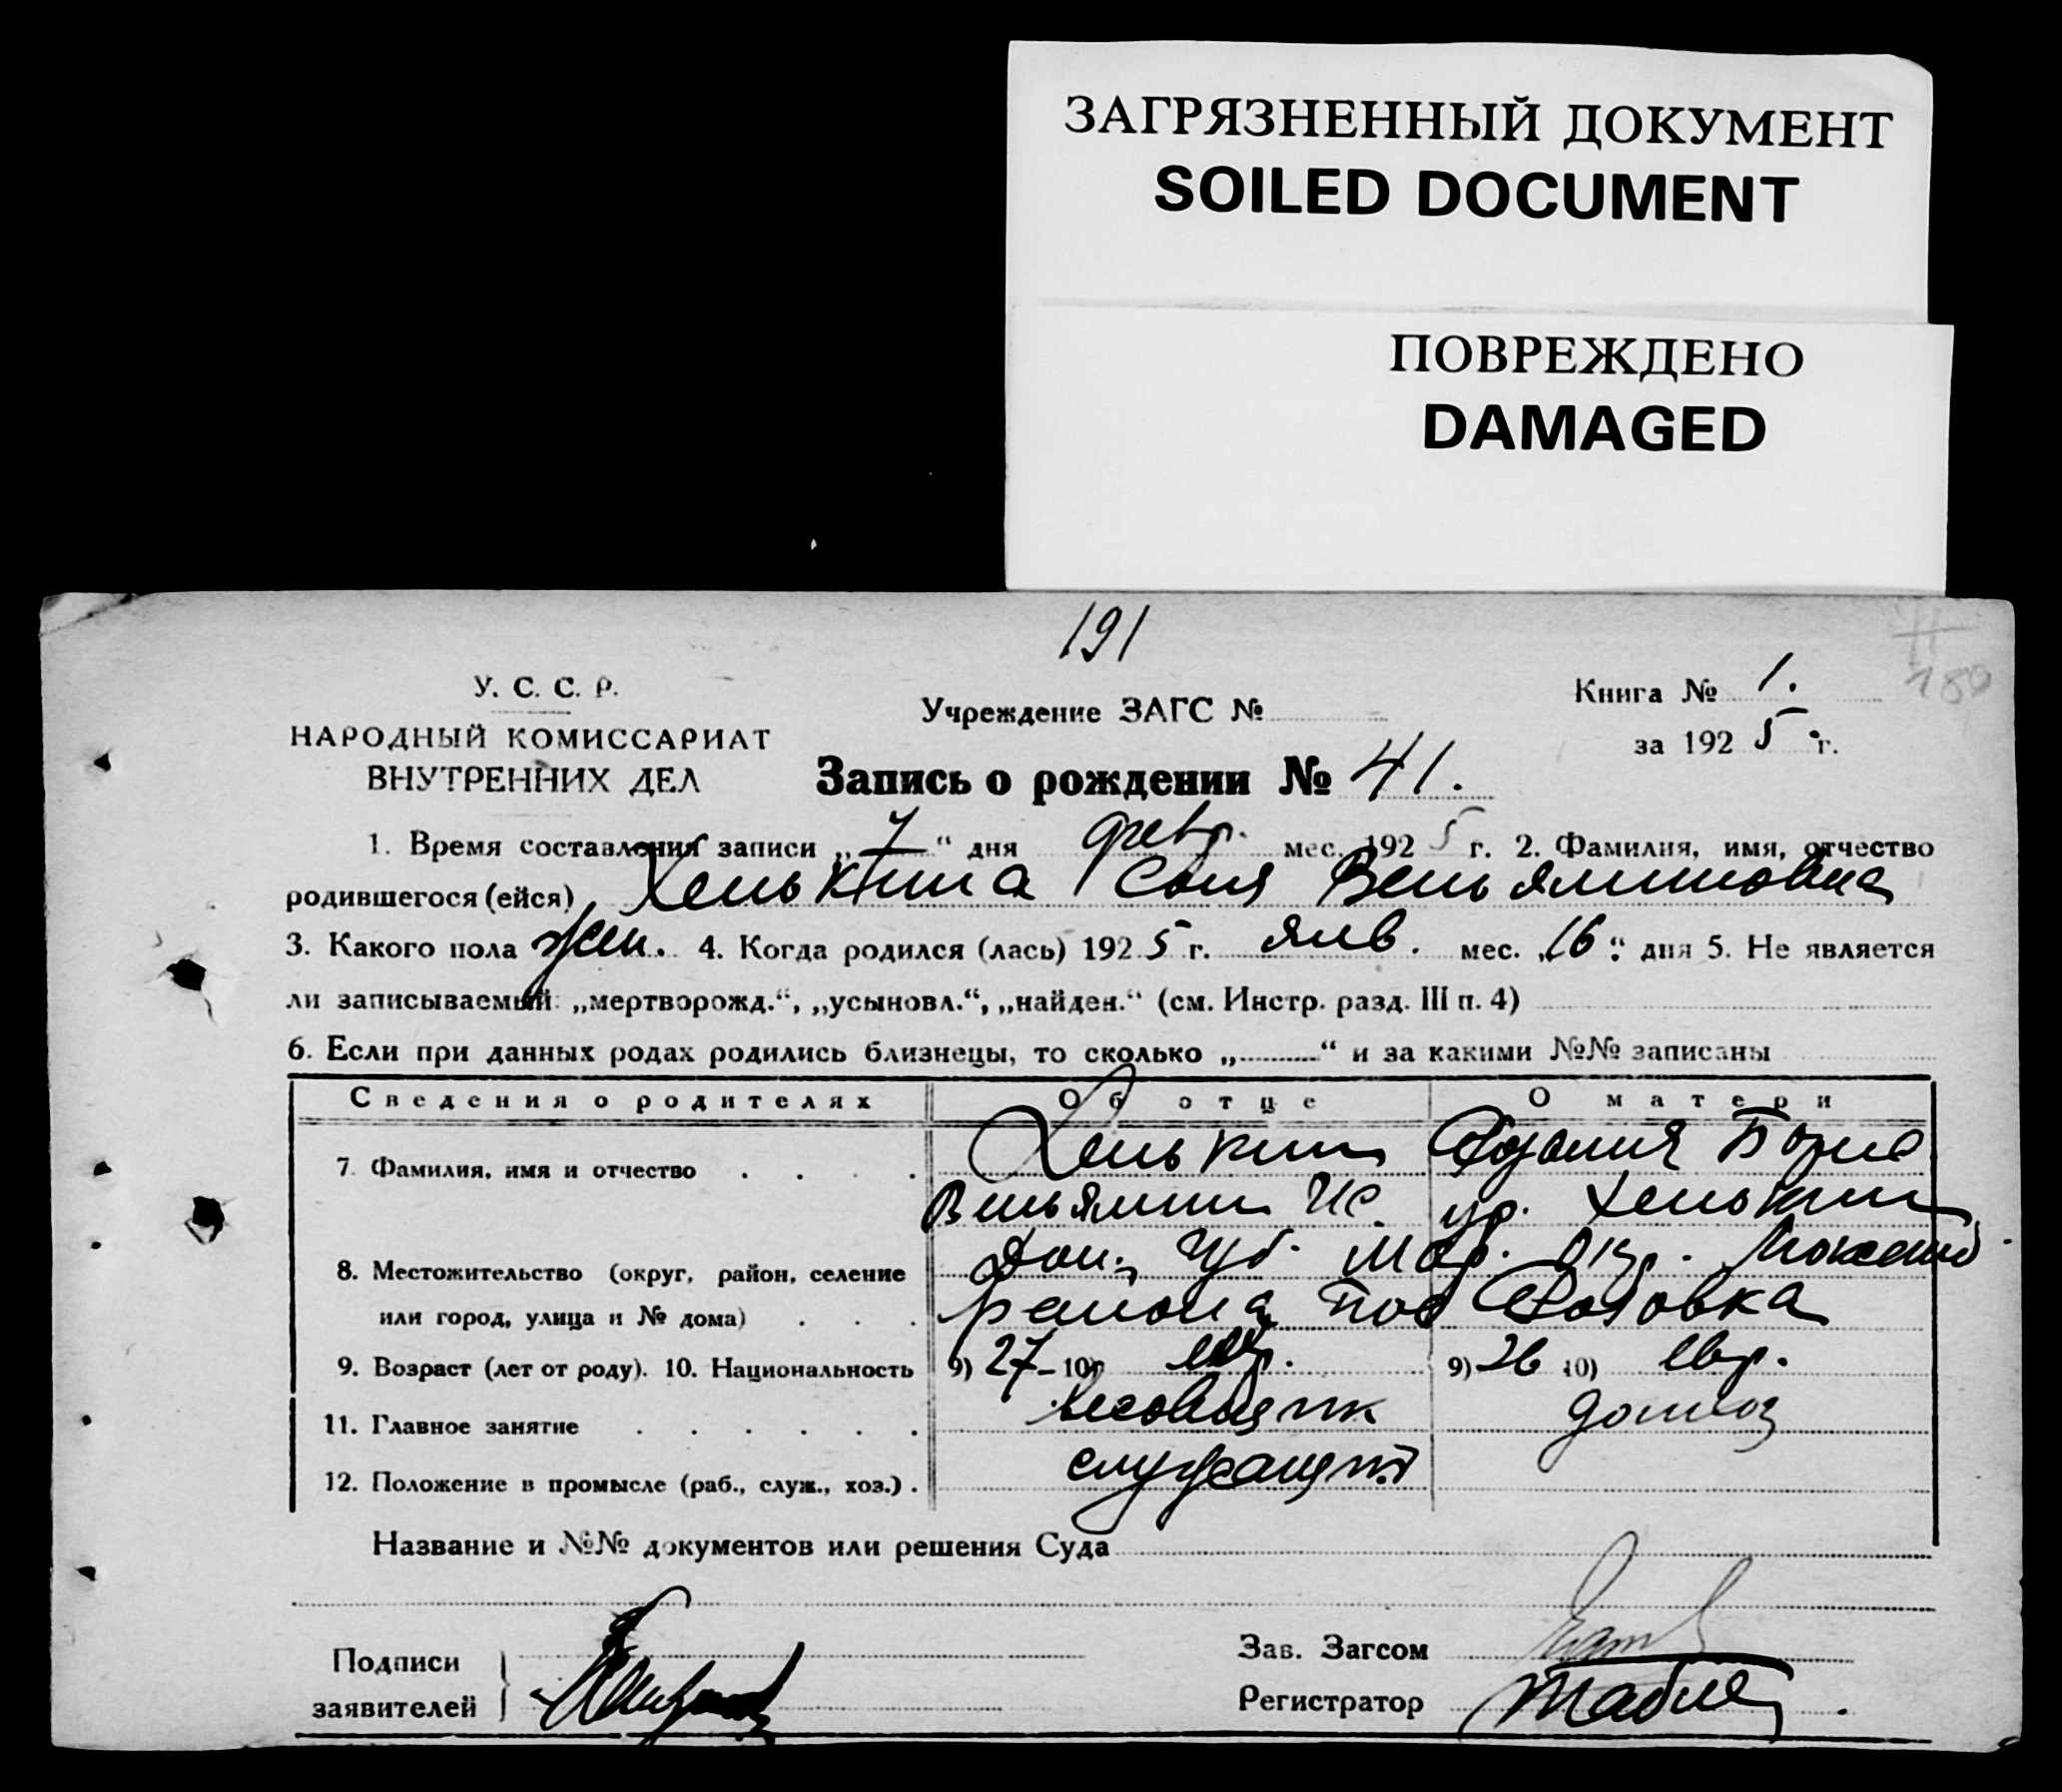 ЗАГРЯЗНЕННЫЙ ДОКУМЕНТ
SOILED DOCUMENT
ПОВРЕЖДЕНО
DAMAGED
191
180
У. С. С. Р.
НАРОДНЫЙ КОМИССАРИАТ
ВНУТРЕННИХ ДЕЛ
Учреждение ЗАГС №
Книга № 1.
за 1925 г.
Запись о рождении № 41.
1. Время составления записи „7“ дня февр. мес. 1925 г. 2. Фамилия, имя, отчество
родившегося (ейся) Хенькина Соня Веньяминовна
3. Какого пола жен. 4. Когда родился (лась) 1925 г. янв. мес. „16“ дня 5. Не является
ли записываемый: „мертворожд.“, „усыновл.“, „найден.“ (см. Инстр. разд. III п. 4)
6. Если при данных родах родились близнецы, то сколько „..........“ и за какими №№ записаны
Сведения о родителях Об отце О матери
7. Фамилия, имя и отчество Хенькин Борис
Веньямин Ис. ур. Хенькин
8. Местожительство (округ, район, селение Дон. Губ. Мар. Окр.
или город, улица и № дома) района пос
9. Возраст (лет от роду). 10. Национальность 9) 27 10) евр. 9) 26 10) евр.
11. Главное занятие весовщик домхоз
12. Положение в промысле (раб., служ., хоз.) служащий
Название и №№ документов или решения Суда
Подписи
заявителей
Зав. Загсом
Регистратор